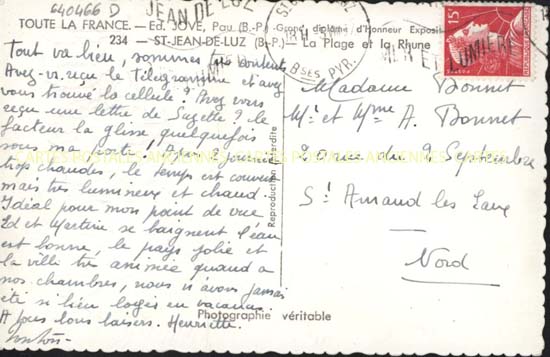 640466 D
TOUTE LA FRANCE. — Ed. JOVE, Pau (B.-P.) -Grand diplôme d'Honneur Exposit
234 — ST-JEAN-DE-LUZ (B.-P.) — La Plage et la Rhune
JEAN DE LUZ
Bses PYR.
MER ET LUMIÈRE
15F
Tout va bien, sommes très contents
Avez-vs reçu le Télégramme et avez
vous trouvé la cellule? Avez vous
reçu une lettre de Suzette? le
facteur la glisse quelquefois
sous ma porte! Après 2 journées
trop chaudes, le temps est couvert
mais très lumineux et chaud.
Idéal pour mon point de vue
Ed et Martine se baignent l'eau
est bonne, le pays jolie et
la ville très animée quand à
nos chambres, nous n'avons jamais
été si bien logés en vacances.
A tous bons baisers. Henriette.
Reproduction interdite
Photographie véritable
CARTES POSTALES ANCIENNES CARTES POSTALES ANCIENNES
Madame Bonnet
Mr et Mme A. Bonnet
rue du 4 Septembre
St Amand les Eaux
Nord